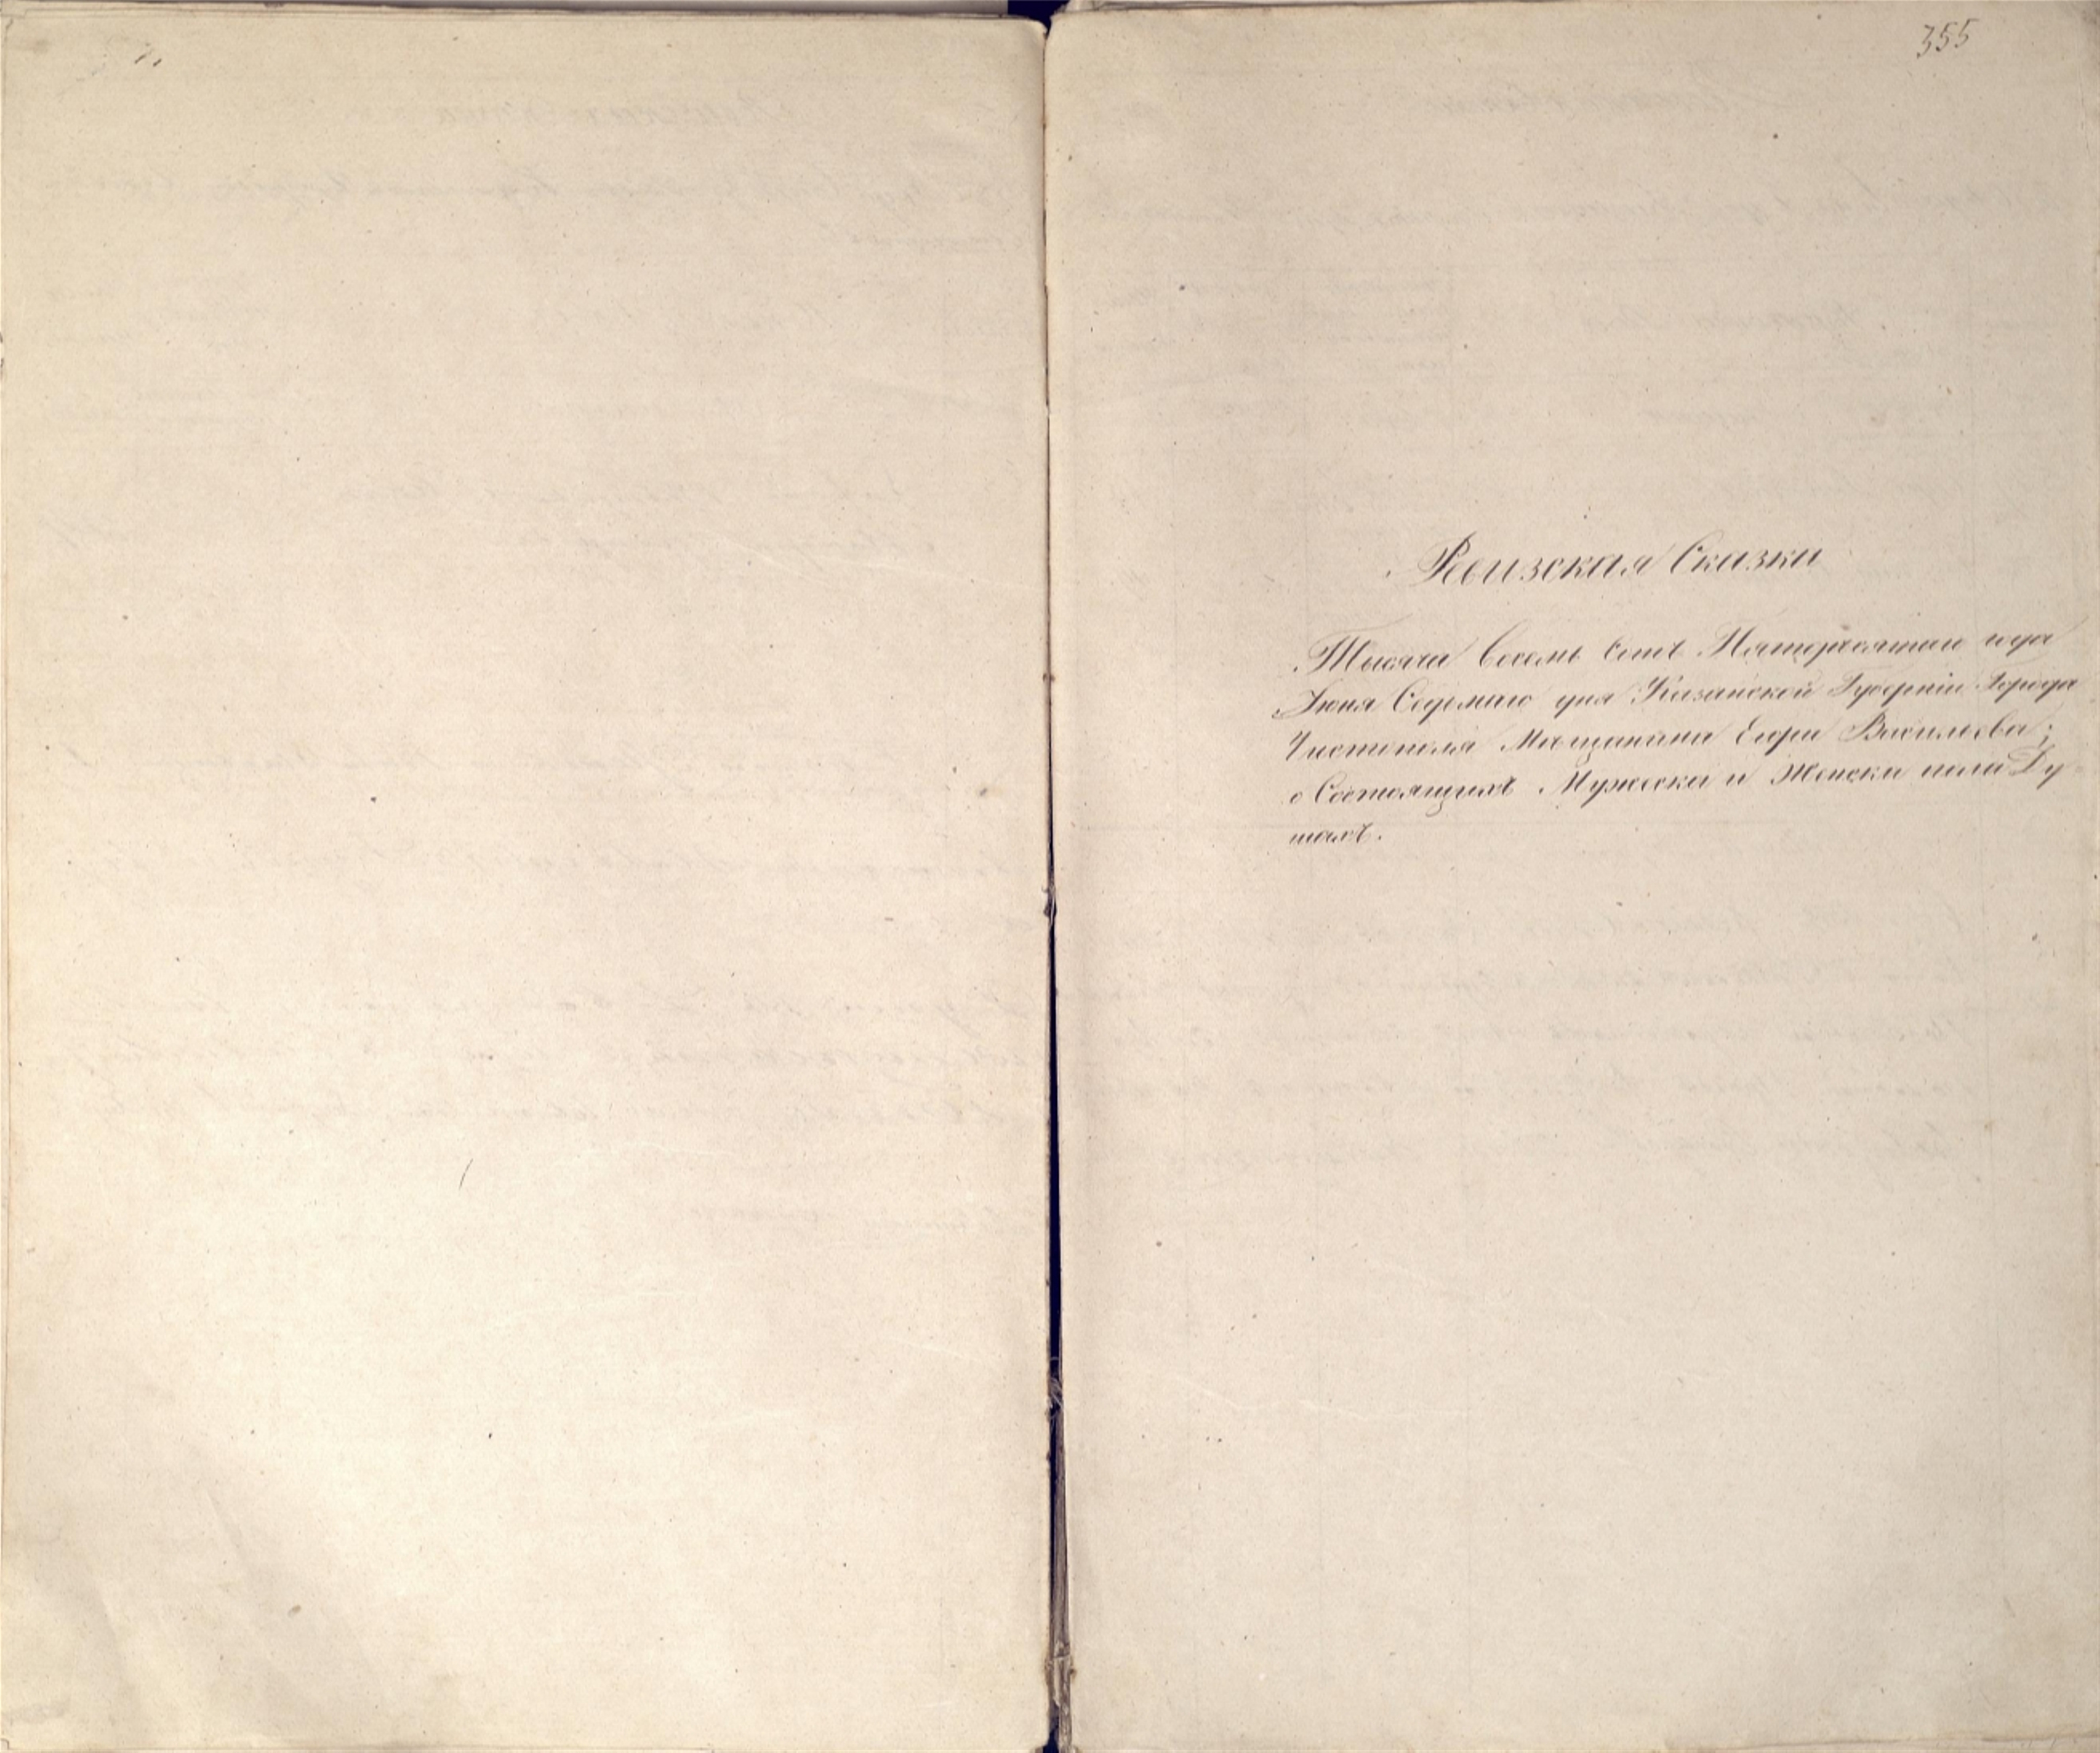 355
Ревизская Сказка
Тысяча Восемь Сотъ Пятдесятаго года
Іюня Седьмаго дня Казанской Губерніи Города
Чистополя Мѣщанина Егора Васильева;
о Состоящихъ Мужеска и Женска пола Ду
шахъ.